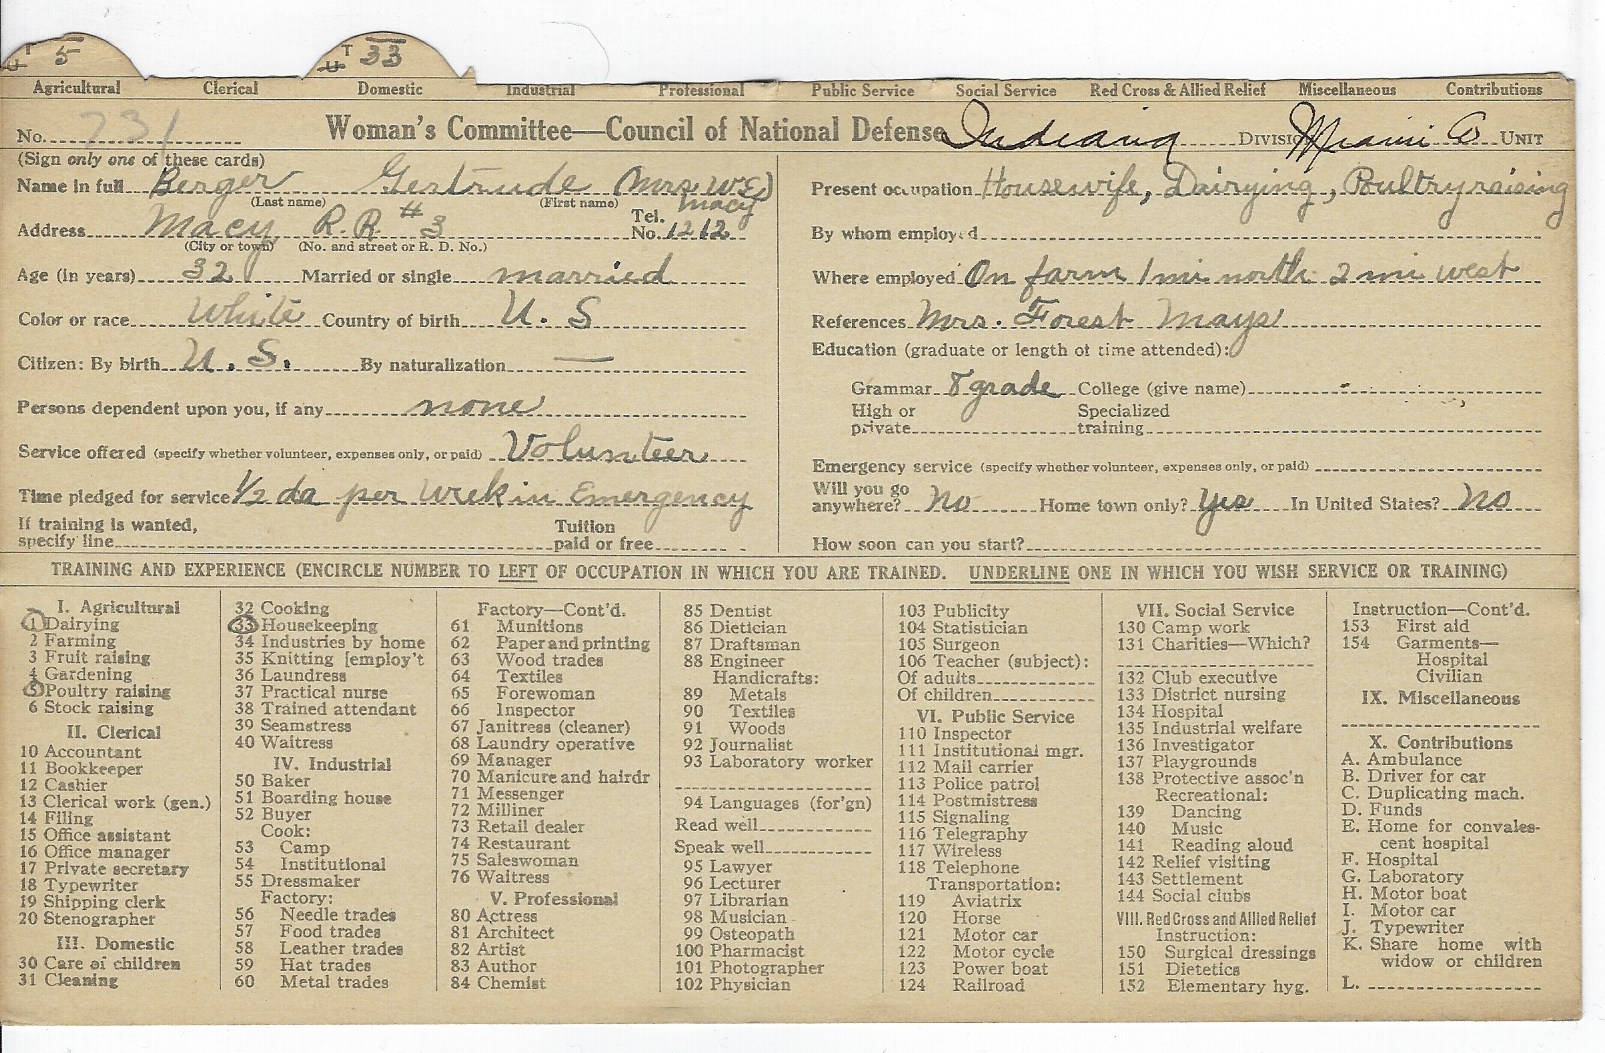 T U 5 T U 33
Agricultural Clerical Domestic Industrial Professional Public Service Social Service Red Cross & Allied Relief Miscellaneous Contributions
No. 731 Woman's Committee—Council of National Defense Indiana DIVISION Miami Co. UNIT
(Sign only one of these cards)
Name in full Berger Gertrude (Mrs. W E)
(Last name) (First name)
Address Macy R.R. #3 Tel. No. Macy 1212
(City or town) (No. and street or R. D. No.)
Age (in years) 32 Married or single married
Color or race White Country of birth U. S
Citizen: By birth U. S. By naturalization —
Persons dependent upon you, if any none
Service offered (specify whether volunteer, expenses only, or paid) Volunteer
Time pledged for service 1/2 da per week in Emergency
If training is wanted, specify line Tuition paid or free
Present occupation Housewife, Dairying, Poultry raising
By whom employed
Where employed On farm 1 mi north 2 mi west
References Mrs. Forest Mays
Education (graduate or length of time attended):
Grammar 8 grade College (give name)
High or private Specialized training
Emergency service (specify whether volunteer, expenses only, or paid)
Will you go anywhere? No Home town only? Yes In United States? No
How soon can you start?
TRAINING AND EXPERIENCE (ENCIRCLE NUMBER TO LEFT OF OCCUPATION IN WHICH YOU ARE TRAINED. UNDERLINE ONE IN WHICH YOU WISH SERVICE OR TRAINING)
I. Agricultural
1 Dairying
2 Farming
3 Fruit raising
4 Gardening
5 Poultry raising
6 Stock raising
II. Clerical
10 Accountant
11 Bookkeeper
12 Cashier
13 Clerical work (gen.)
14 Filing
15 Office assistant
16 Office manager
17 Private secretary
18 Typewriter
19 Shipping clerk
20 Stenographer
III. Domestic
30 Care of children
31 Cleaning
32 Cooking
33 Housekeeping
34 Industries by home
35 Knitting [employ't
36 Laundress
37 Practical nurse
38 Trained attendant
39 Seamstress
40 Waitress
IV. Industrial
50 Baker
51 Boarding house
52 Buyer
Cook:
53 Camp
54 Institutional
55 Dressmaker
Factory:
56 Needle trades
57 Food trades
58 Leather trades
59 Hat trades
60 Metal trades
Factory—Cont'd.
61 Munitions
62 Paper and printing
63 Wood trades
64 Textiles
65 Forewoman
66 Inspector
67 Janitress (cleaner)
68 Laundry operative
69 Manager
70 Manicure and hairdr
71 Messenger
72 Milliner
73 Retail dealer
74 Restaurant
75 Saleswoman
76 Waitress
V. Professional
80 Actress
81 Architect
82 Artist
83 Author
84 Chemist
85 Dentist
86 Dietician
87 Draftsman
88 Engineer
Handicrafts:
89 Metals
90 Textiles
91 Woods
92 Journalist
93 Laboratory worker
94 Languages (for'gn)
Read well
Speak well
95 Lawyer
96 Lecturer
97 Librarian
98 Musician
99 Osteopath
100 Pharmacist
101 Photographer
102 Physician
103 Publicity
104 Statistician
105 Surgeon
106 Teacher (subject):
Of adults
Of children
VI. Public Service
110 Inspector
111 Institutional mgr.
112 Mail carrier
113 Police patrol
114 Postmistress
115 Signaling
116 Telegraphy
117 Wireless
118 Telephone
Transportation:
119 Aviatrix
120 Horse
121 Motor car
122 Motor cycle
123 Power boat
124 Railroad
VII. Social Service
130 Camp work
131 Charities—Which?
132 Club executive
133 District nursing
134 Hospital
135 Industrial welfare
136 Investigator
137 Playgrounds
138 Protective assoc'n
Recreational:
139 Dancing
140 Music
141 Reading aloud
142 Relief visiting
143 Settlement
144 Social clubs
VIII. Red Cross and Allied Relief
Instruction:
150 Surgical dressings
151 Dietetics
152 Elementary hyg.
Instruction—Cont'd.
153 First aid
154 Garments—
Hospital
Civilian
IX. Miscellaneous
X. Contributions
A. Ambulance
B. Driver for car
C. Duplicating mach.
D. Funds
E. Home for convales-
cent hospital
F. Hospital
G. Laboratory
H. Motor boat
I. Motor car
J. Typewriter
K. Share home with
widow or children
L.